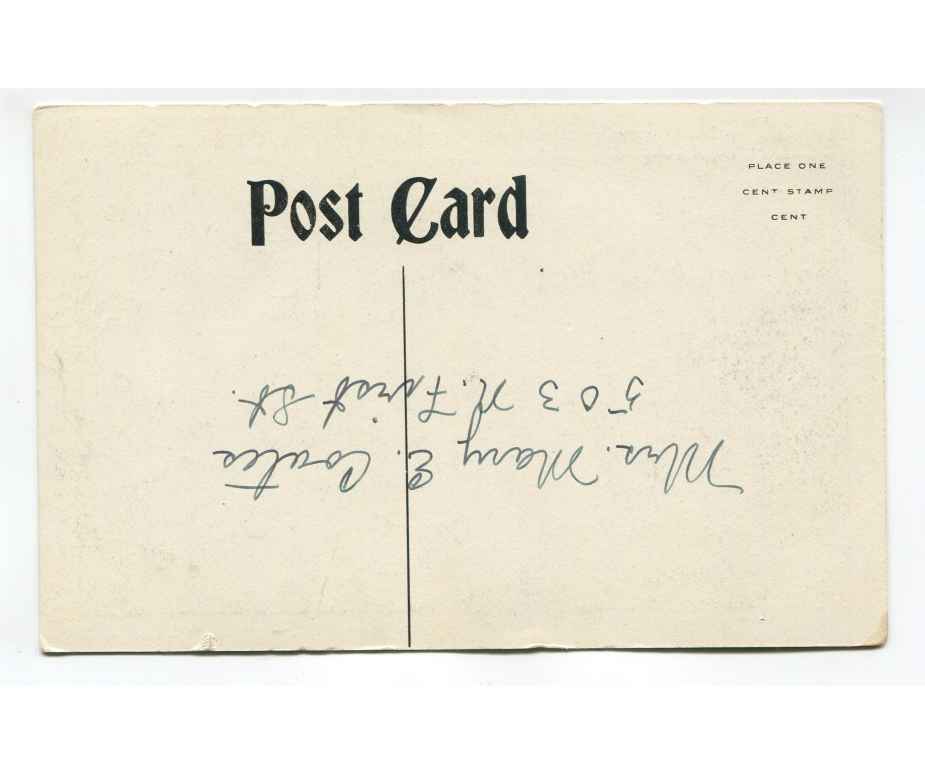 Post Card
PLACE ONE
CENT STAMP
CENT
Mrs. Mary E. Coates
503 N. Forest St.